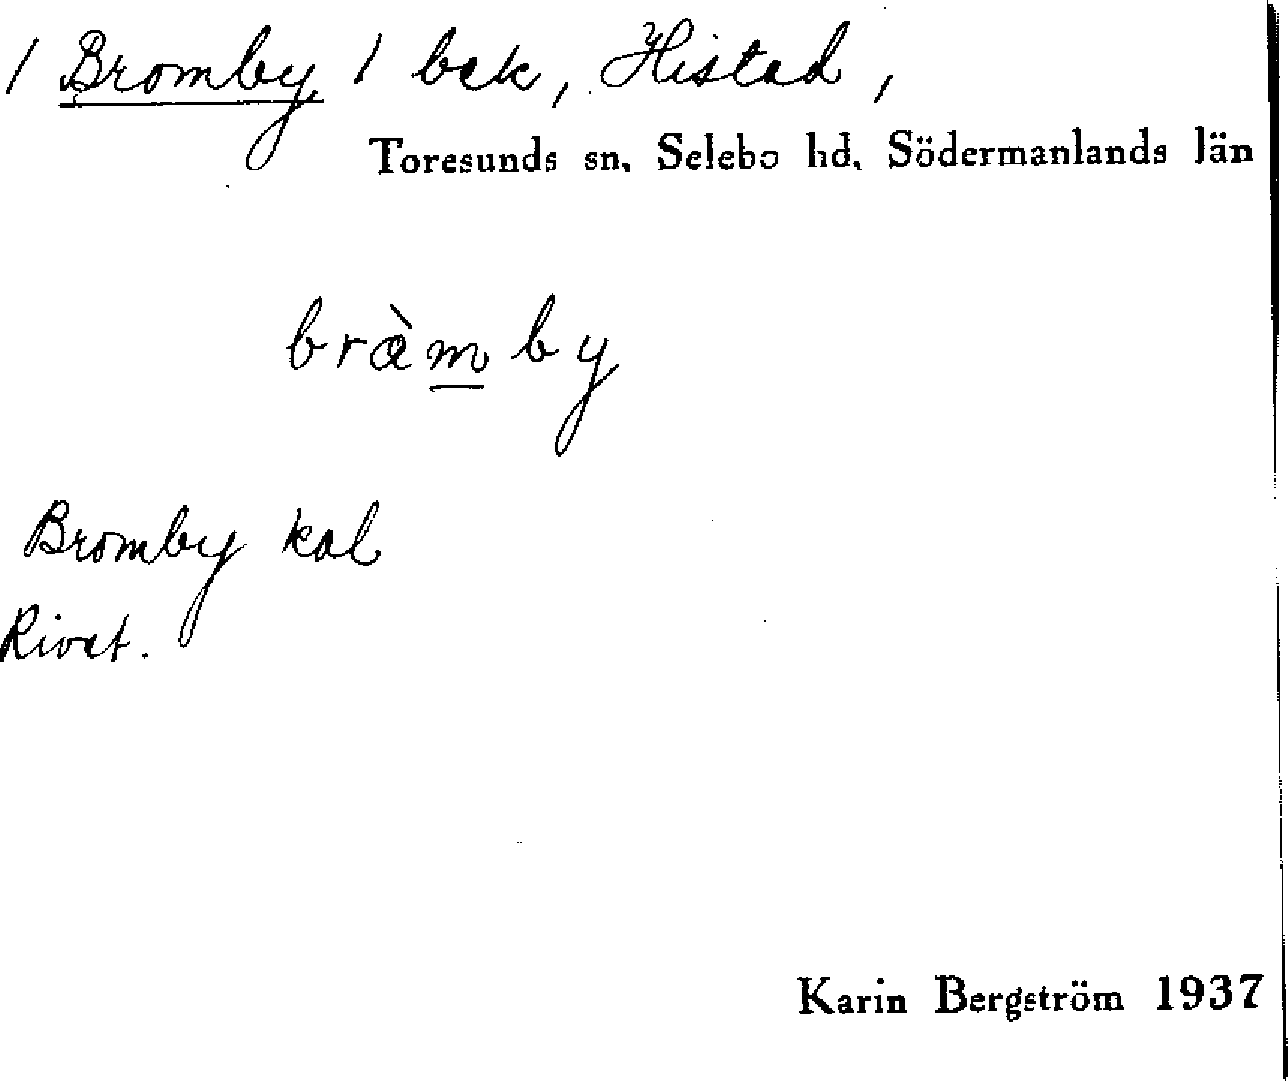 / Bromby / bek, Histad,
Toresunds sn. Selebo hd. Södermanlands län
bræ̀mby
Bromby kal
Rivet.
Karin Bergström 1937